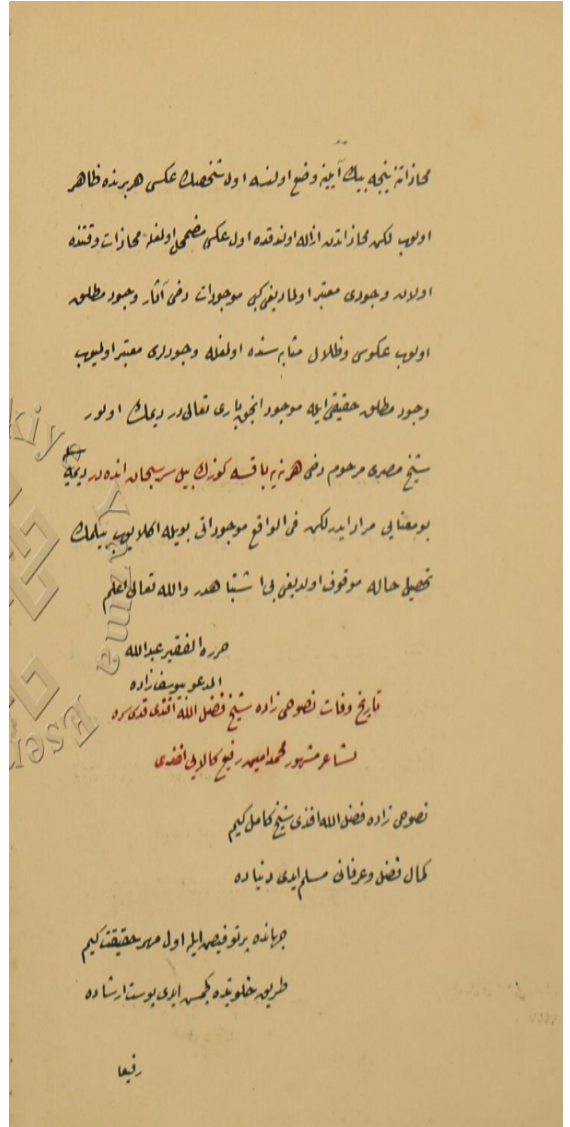 محاذاتنه نیجه بیك آیینه وضع اولنسه اول شخصك عکسی هر برنده ظاهر
اولوب لکن محاذاتدن ازاله اولندقده اول عکس مضمحل اولمغله محاذات وقتنده
اولان وجودی معتبر اولمادیغی کبی موجودات دخی آثار وجود مطلق
اولوب عکوس وظلال مثابه سنده اولمغله وجودلری معتبر اولمیوب
وجود مطلق حقیقی ایله موجود انجق باری تعالی در دیمك اولور
شیخ مصری مرحوم دخی هر نه یه باقسه کوزك بیل سر سبحان انده در دیمه
بو معنایی مراد ایدر لکن فی الواقع موجوداتی بویله اکلایوب بیلمك
تحصیل حاله موقوف اولدیغی بی اشتباهدر والله تعالی اعلم
حرره الفقیر عبدالله
المدعو بیوسف زاده
تاریخ وفات نصوحی زاده شیخ فضل الله افندی قدس سره
لشاعر مشهور محمد امین رفیع کالایی افندی
نصوحی زاده فضل الله افندی شیخ کامل کیم
کمال فضل وعرفانی مسلم ایدی دنیاده
جهانده پرتو فیض ایله اول مهر حقیقت کیم
طریق خلوتیده ایدی پوست ارشاده
رفیعا
Yazma